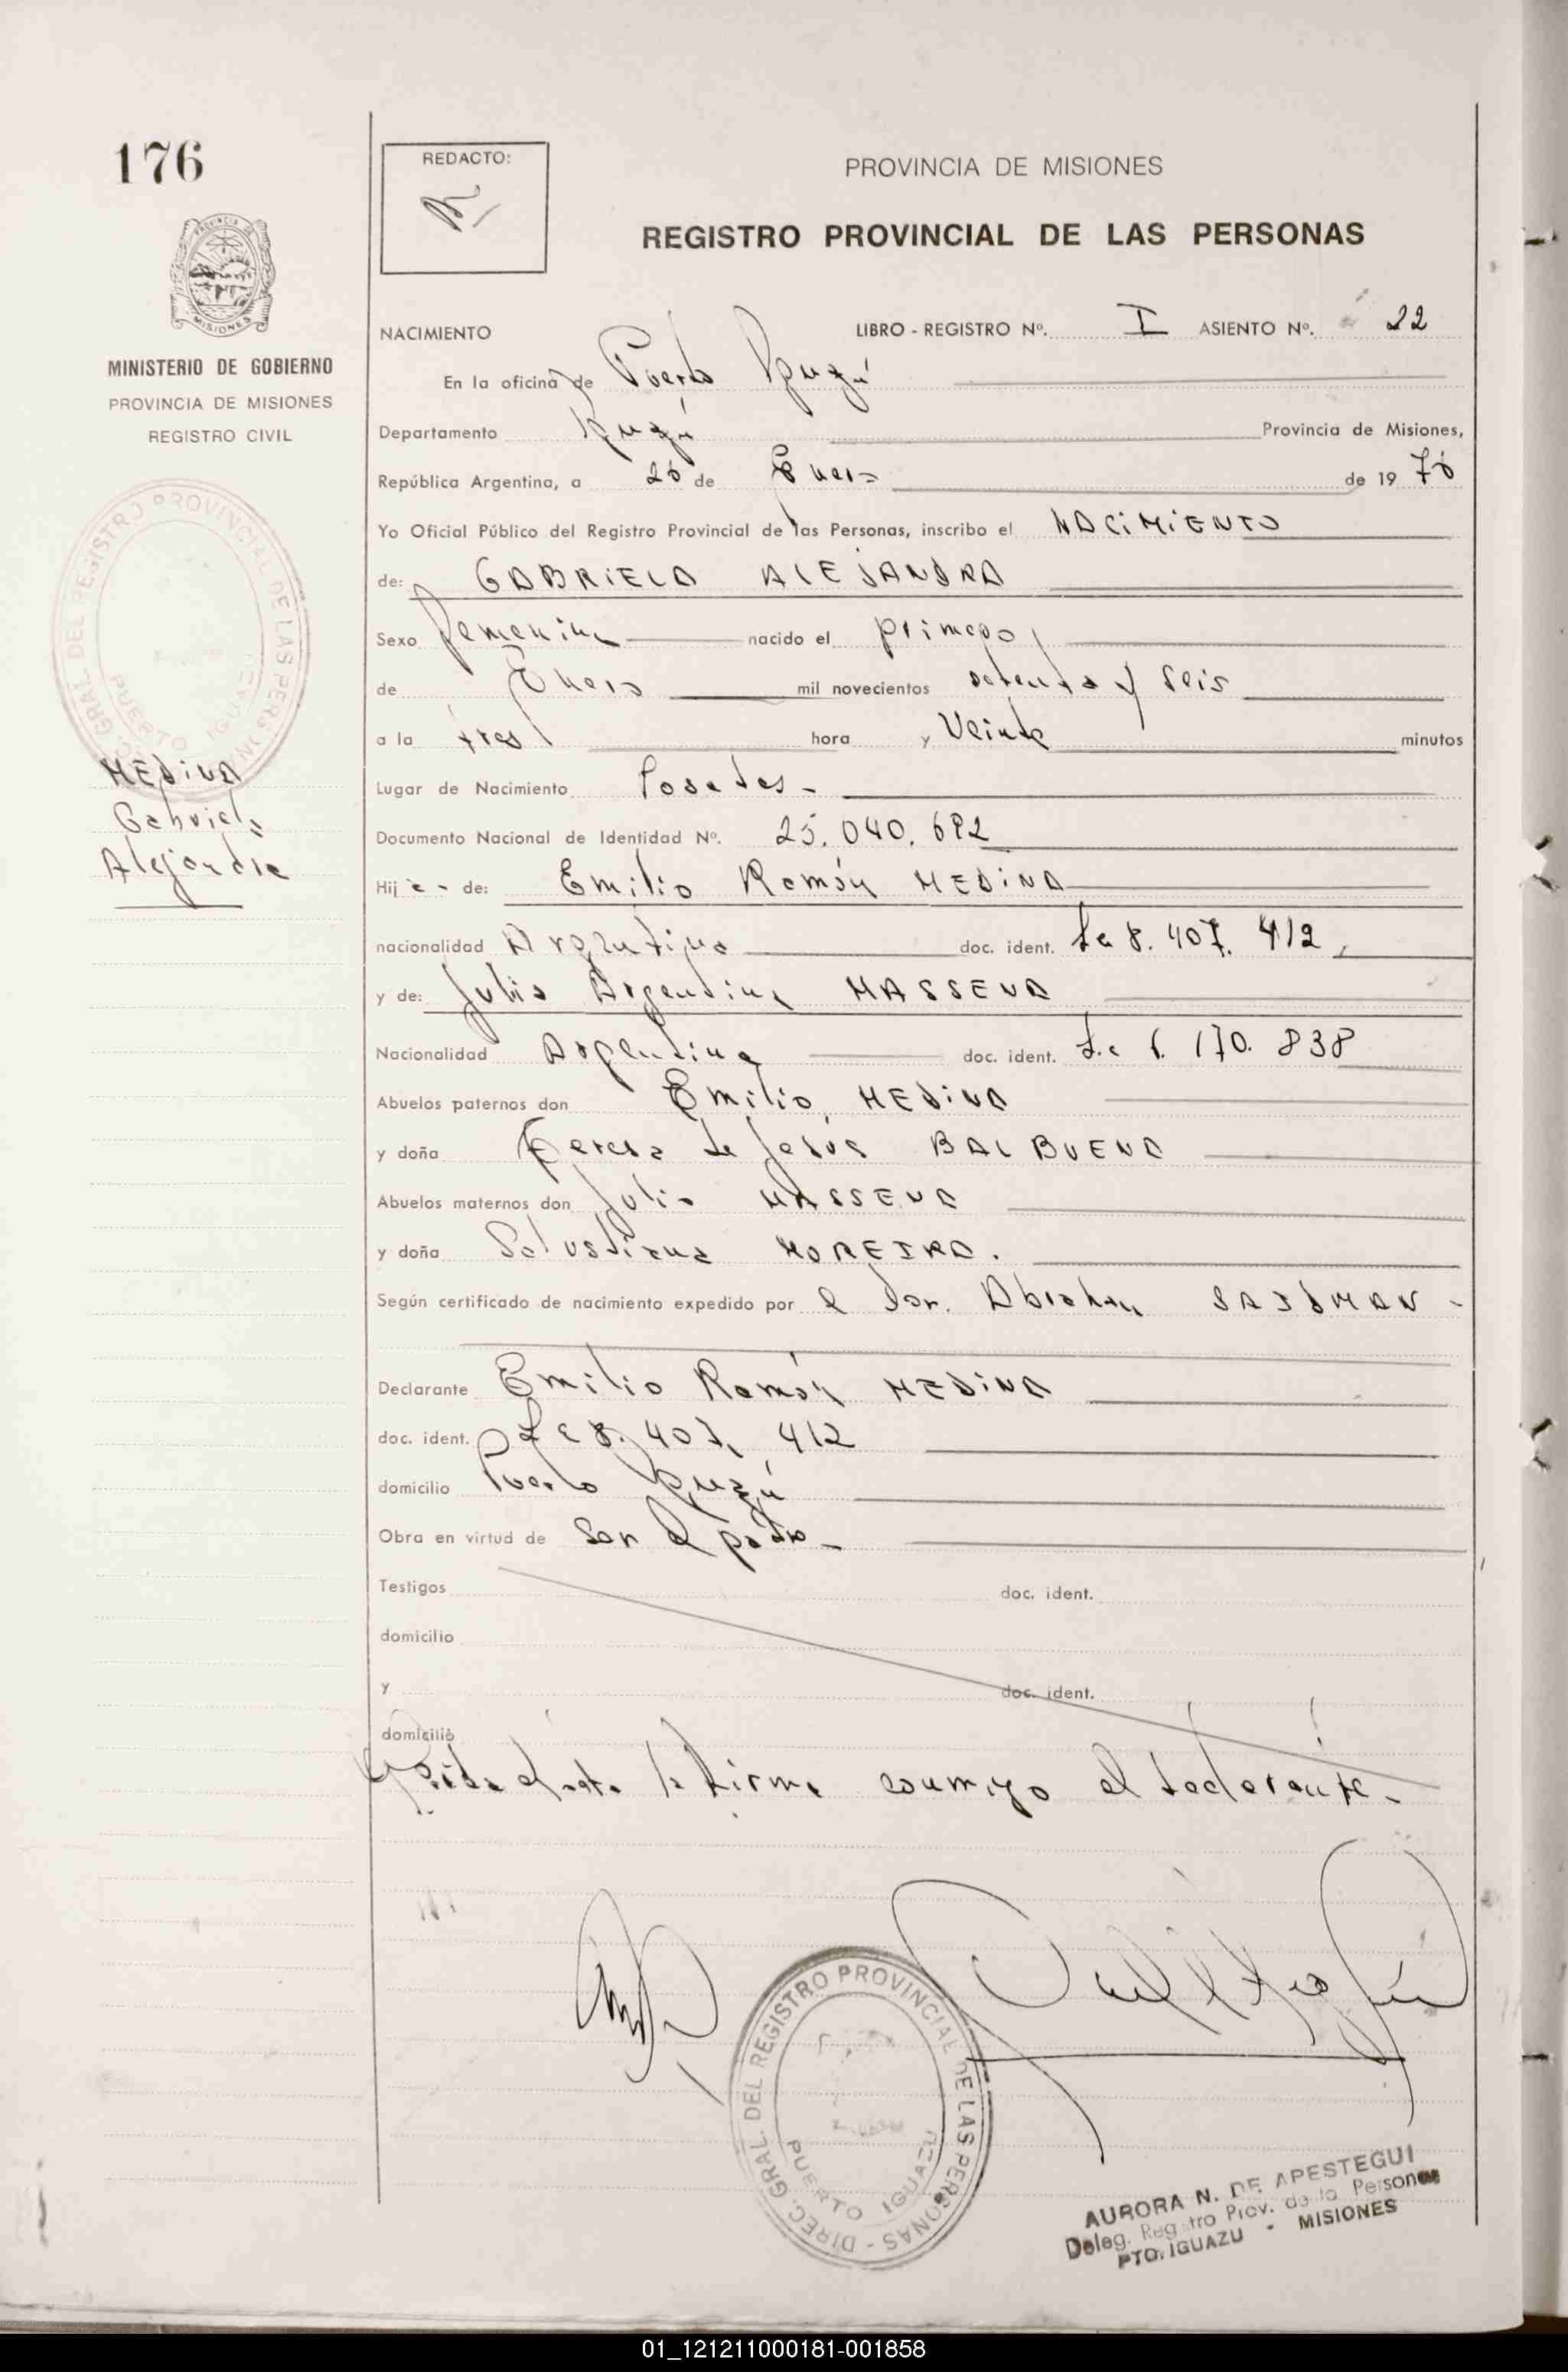 176
REDACTO:
PROVINCIA DE MISIONES
REGISTRO PROVINCIAL DE LAS PERSONAS
MISIONES
MINISTERIO DE GOBIERNO
PROVINCIA DE MISIONES
REGISTRO CIVIL
NACIMIENTO LIBRO - REGISTRO Nº. I ASIENTO Nº. 22
En la oficina de Puerto Iguazú
Departamento Iguazú Provincia de Misiones,
República Argentina, a 26 de Enero de 19 76
Yo Oficial Público del Registro Provincial de las Personas, inscribo el NACIMIENTO
de: GABRIELA ALEJANDRA
Sexo Femenino nacido el primero
de Enero mil novecientos setenta y seis
a la tres hora y Veinte minutos
Lugar de Nacimiento Posadas -
Documento Nacional de Identidad Nº. 25.040.692
Hij a - de: Emilio Ramón MEDINA
nacionalidad Argentino doc. ident. 8.407.412
y de: Julia Argentina MASSENA
Nacionalidad Argentina doc. ident. L.c 6.170.838
Abuelos paternos don Emilio MEDINA
y doña Teresa de Jesús BALBUENA
Abuelos maternos don Julio MASSENA
y doña Salustiana MOREIRA.
Según certificado de nacimiento expedido por el Dor. Abraham SAIDMAN -
Declarante Emilio Ramón MEDINA
doc. ident. 8.407.412
domicilio Puerto Iguazú
Obra en virtud de Ser el padre -
Testigos doc. ident.
domicilio
y doc. ident.
domicilio
Leida el acta la firma conmigo el declarante.
DIREC. GRAL. DEL REGISTRO PROVINCIAL DE LAS PERSONAS -
PUERTO IGUAZU
AURORA N. DE APESTEGUI
Deleg. Registro Prov. de la Personas
PTO. IGUAZU - MISIONES
GRAL. DEL REGISTRO PROVINCIAL DE LAS PERSONAS
PUERTO IGUAZU
MEDINA
Gabriela
Alejandra
01_121211000181-001858